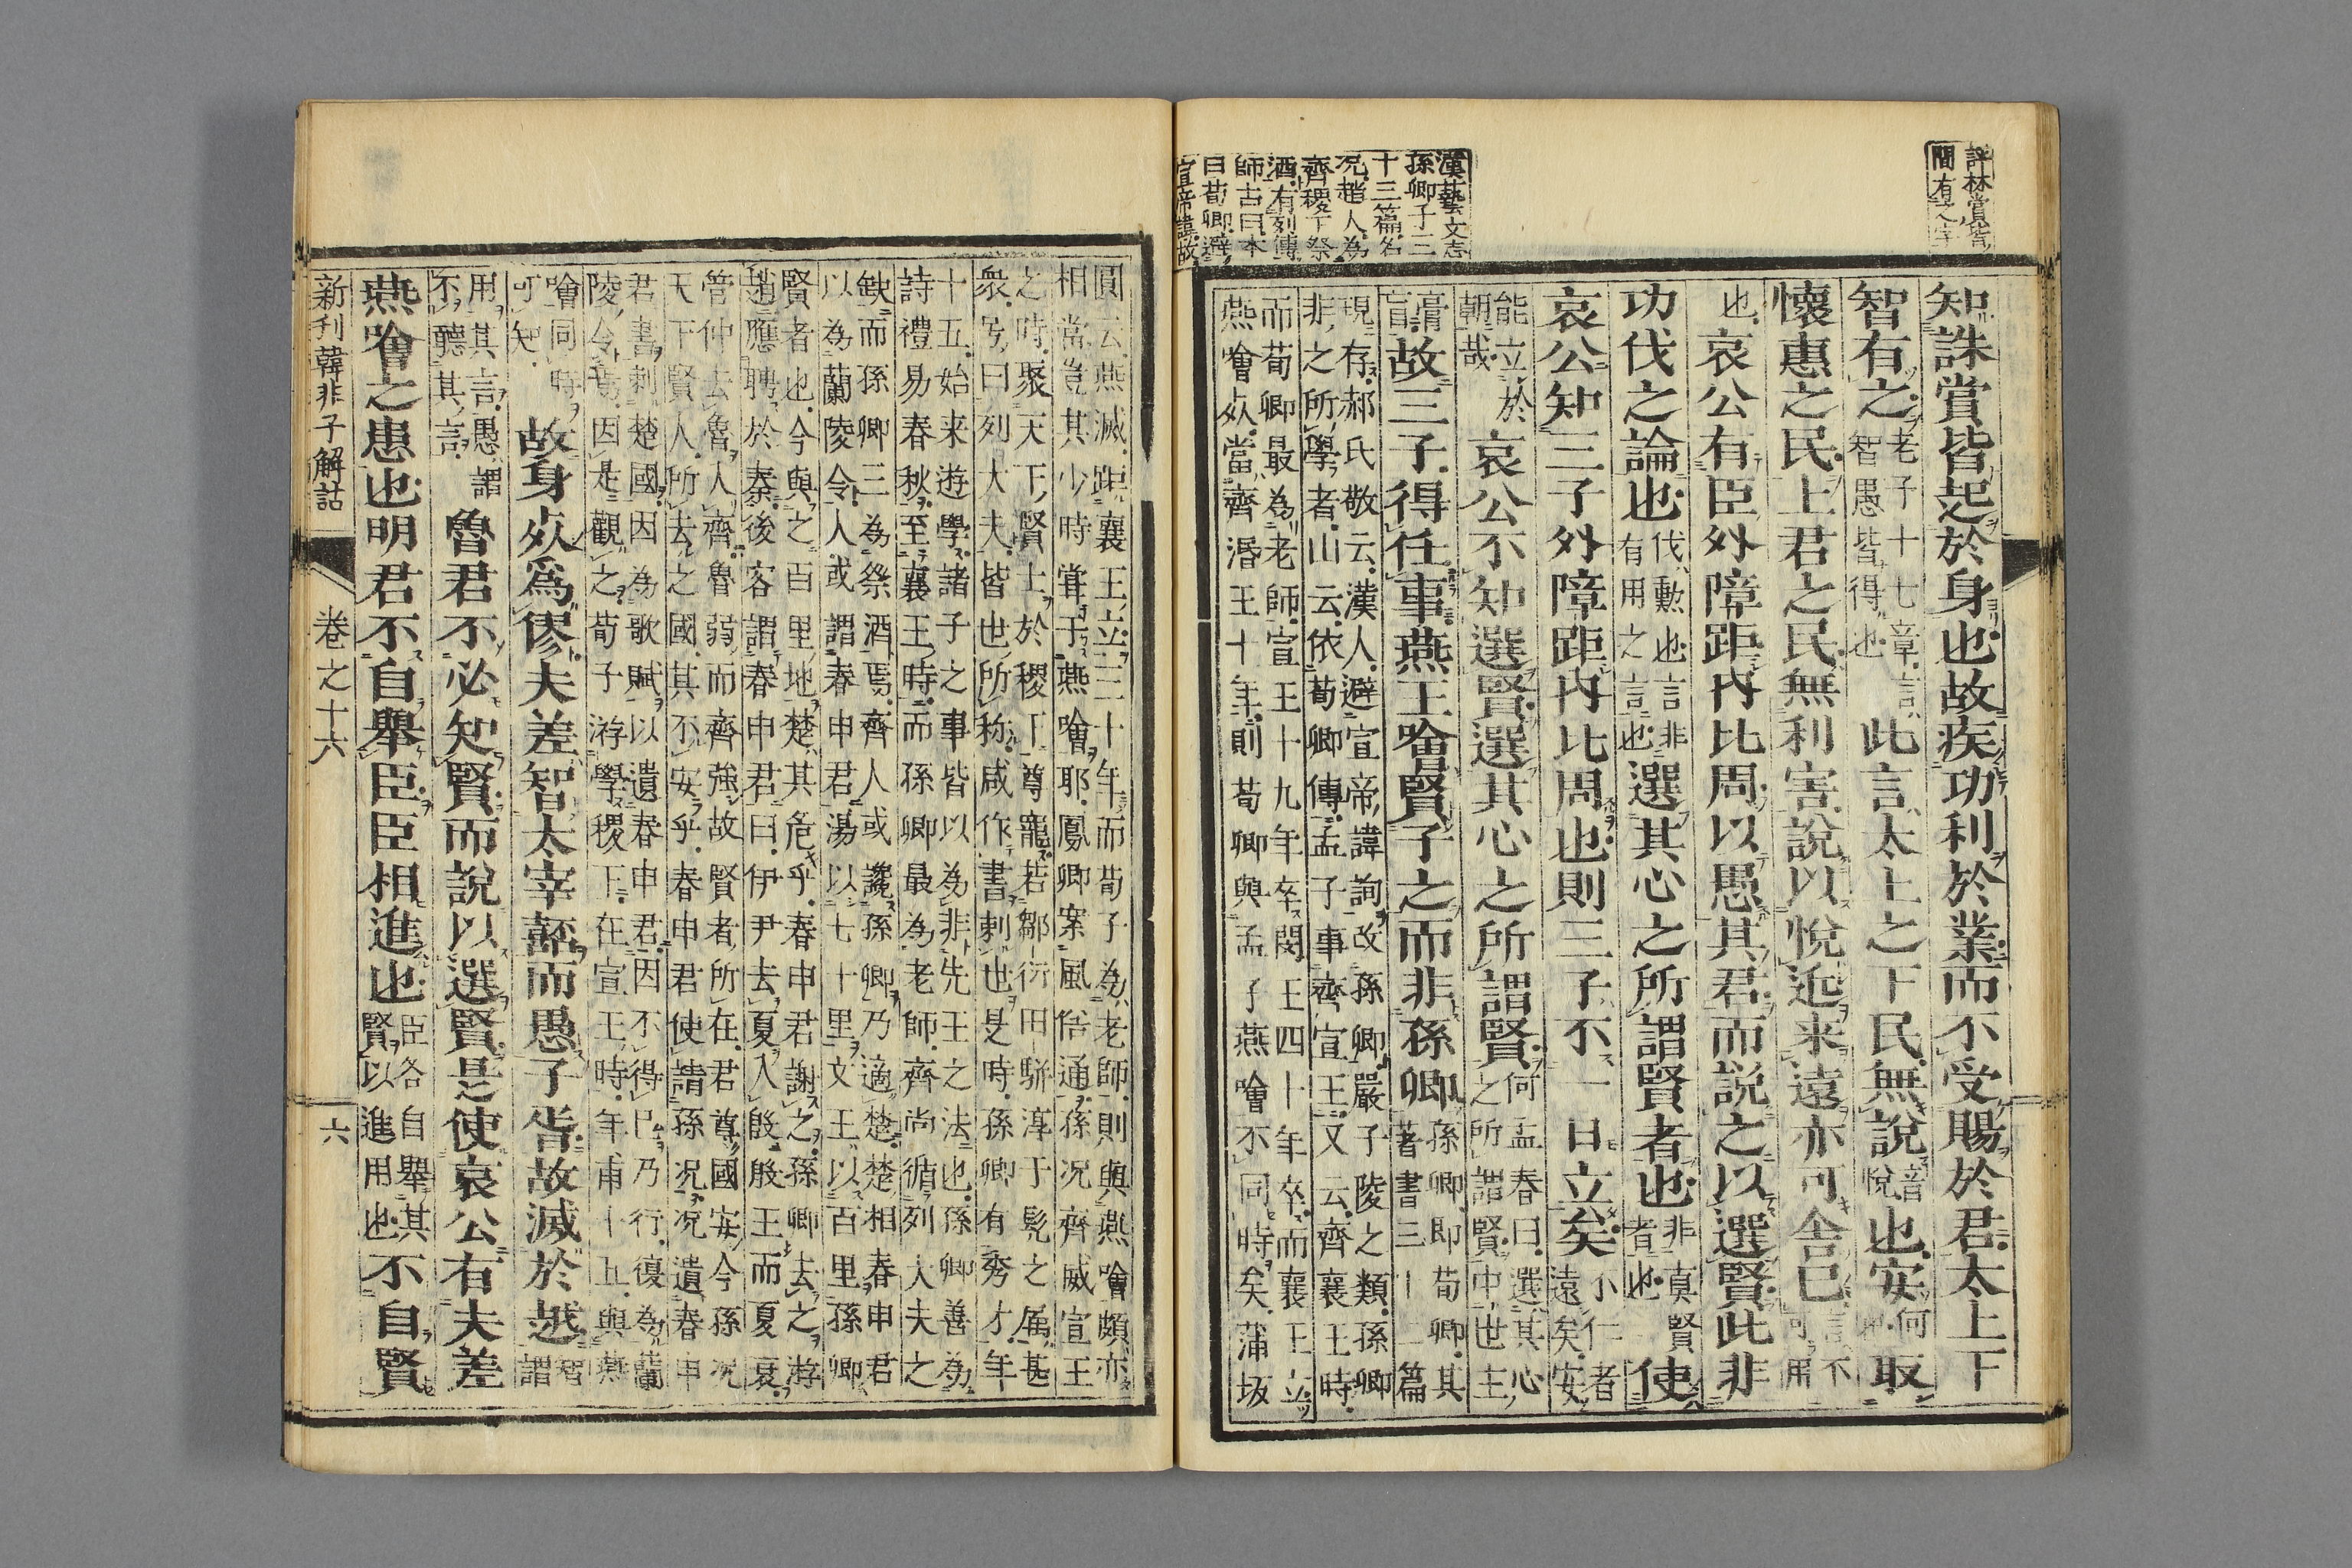 評林賞皆
間有人字
知誅賞皆起於身也故疾功利於業而不受賜於君太上下
智有之老子十七章言
智愚皆得也此言太上之下民無說音
悅也安何
取
懷惠之民上君之民無利害說以悅近来遠亦可舍已言不
可用
也哀公有臣外障距内比周以愚其君而説之以選賢此非
功伐之論也伐勲也言非
有用之言也選其心之所謂賢者也非真賢
者也使
哀公知三子外障距内比周也則三子不一日立矣不仁者
遠矣安
能立於
朝哉哀公不知選賢選其心之所謂賢何孟春曰選其心
之所謂賢中世主
膏
盲故三子得任事燕王噲賢子之而非孫卿孫卿即荀卿其
著書三十二篇
現存郝氏敬云漢人避宣帝諱詢改孫卿嚴子陵之類孫卿
非之所學者山云依荀卿傳孟子事齊宣王又云齊襄王時
而荀卿最為老師宣王十九年卒閔王四十年卒而襄王立
燕噲死當齊湣王十年則荀卿與孟子燕噲不同時矣蒲坂
漢藝文志
孫卿子三
十三篇名
况趙人為
齊稷下祭
酒有列傳
師古曰本
曰荀卿避
宣帝諱故
圓云燕滅距襄王立三十年而荀子為老師則與燕噲頗亦
相當豈其少時甞于燕噲耶鳳卿案風俗通孫况齊威宣王
之時聚天下賢士於稷下尊寵若鄒衍田駢淳于髡之属甚
衆号曰列大夫皆世所称咸作書刺也是時孫卿有秀才年
十五始来遊學諸子之事皆以為非先王之法也孫卿善為
詩禮易春秋至襄王時而孫卿最為老師齊尚循列大夫之
缺而孫卿三為祭酒焉齊人或讒孫卿乃適楚楚相春申君
以為蘭陵令人或謂春申君湯以七十里文王以百里孫卿
賢者也今與之百里地楚其危乎春申君謝之孫卿去之游
趙應聘於秦後客謂春申君曰伊尹去夏入殷殷王而夏衰
管仲去魯入齊魯弱而齊強故賢者所在君尊國安今孫况
天下賢人所去之國其不安乎春申君使請孫况况遺春申
君書刺楚國因為歌賦以遺春申君因不得已乃行復為蘭
陵令焉因是觀之荀子游學稷下在宣王時年甫十五與燕
噲同時
可知故身死爲僇夫差智太宰嚭而愚子胥故滅於越智
謂
用其言愚謂
不聽其言魯君不必知賢而說以選賢是使哀公有夫差
燕噲之患也明君不自舉臣臣相進也臣各自舉其
賢以進用也不自賢
新刊韓非子解詁
卷之十六
六